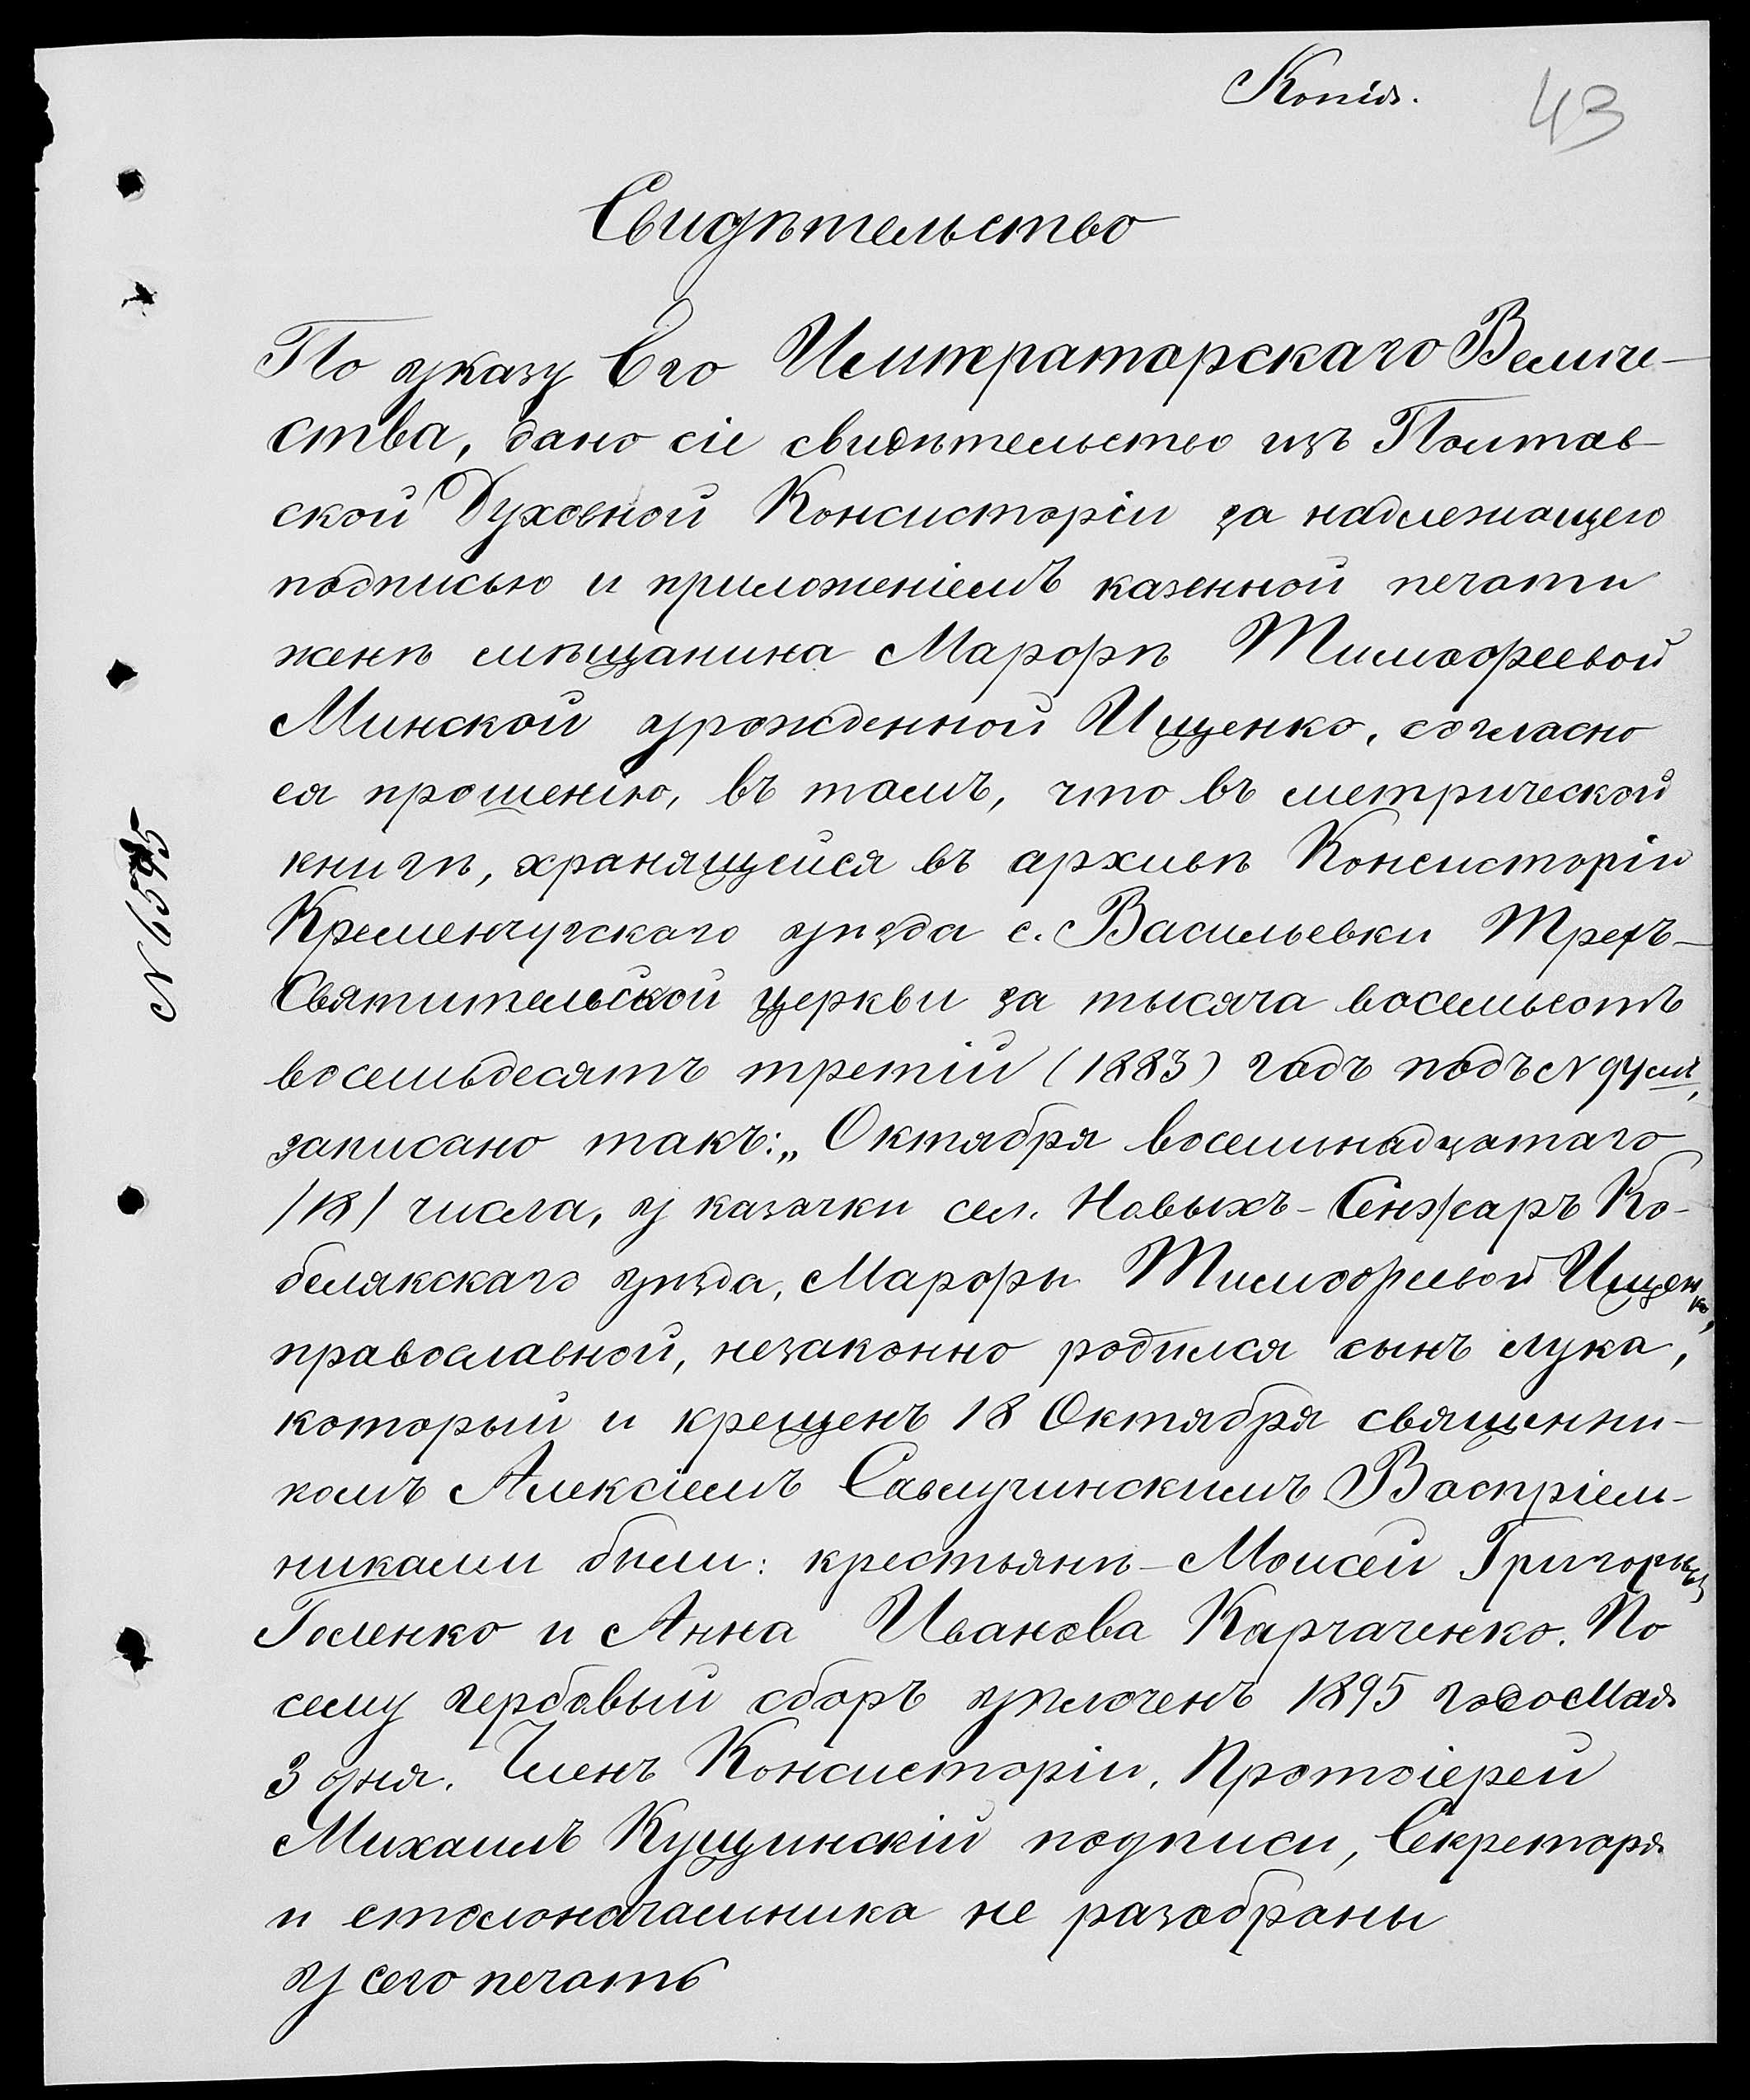 Копія.
43
Свидѣтельство
По указу Его Императорскаго Величе-
ства, дано сіе свидѣтельство изъ Полтав-
ской Духовной Консисторіи за надлежащею
подписью и приложеніемъ казенной печати
женѣ мѣщанина Марфѣ Тимофеевой
Минской урожденной Ищенко, согласно
ея прошенію, въ томъ, что въ метрической
книгѣ, хранящейся въ архивѣ Консисторіи
Кременчугскаго уѣзда с. Васильевки Трехъ-
Святительской церкви за тысяча восемьсотъ
восемьдесятъ третій (1883) годъ подъ N 94 мъ,
записано такъ: „Октября восемнадцатаго
/18/ числа, у казачки сел. Новыхъ-Сенжаръ Ко-
белякскаго уѣзда, Марфы Тимофеевой Ищенко,
православной, незаконно родился сынъ Лука,
который и крещенъ 18 Октября священни-
комъ Алексіемъ Савлучинскимъ Воспріем-
никами были: крестьянѣ - Моисей Григорьевъ
Голенко и Анна Иванова Карчаченко. По
сему гербовый сборъ уплоченъ 1895 года Мая
3 дня. Членъ Консисторіи, Протоіерей
Михаилъ Кущинскій подписи, Секретаря
и столоначальника не разобраны
у сего печать
N 6595